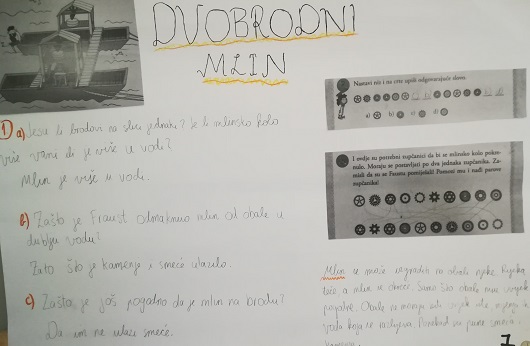 DVOBRODNI
MLIN
1 a) Jesu li brodovi na slici jednaki? Je li mlinsko kolo
više vani ili je više u vodi?
Mlin je više u vodi.
b) Zašto je Faust odmaknuo mlin od obale u
dublju vodu?
Zato što je kamenje i smeće ulazilo.
c) Zašto je još pogodno da je mlin na brodu?
Da im ne ulazi smeće.
Nastavi niz i na crte upiši odgovarajuće slovo.
a) b) c) d)
I ovdje su potrebni zupčanici da bi se mlinsko kolo pokre-
nulo. Moraju se postavljati po dva jednaka zupčanika. Za-
misli da su se Faustu pomiješali! Pomozi mu i nađi parove
zupčanika!
Mlin se može izgraditi na obali rijeke
a mlin se okreće. Samo što obale nisu uvijek
pogodne. Obale se
voda koja se Ponekad su pune smeća i
kamenja.
7